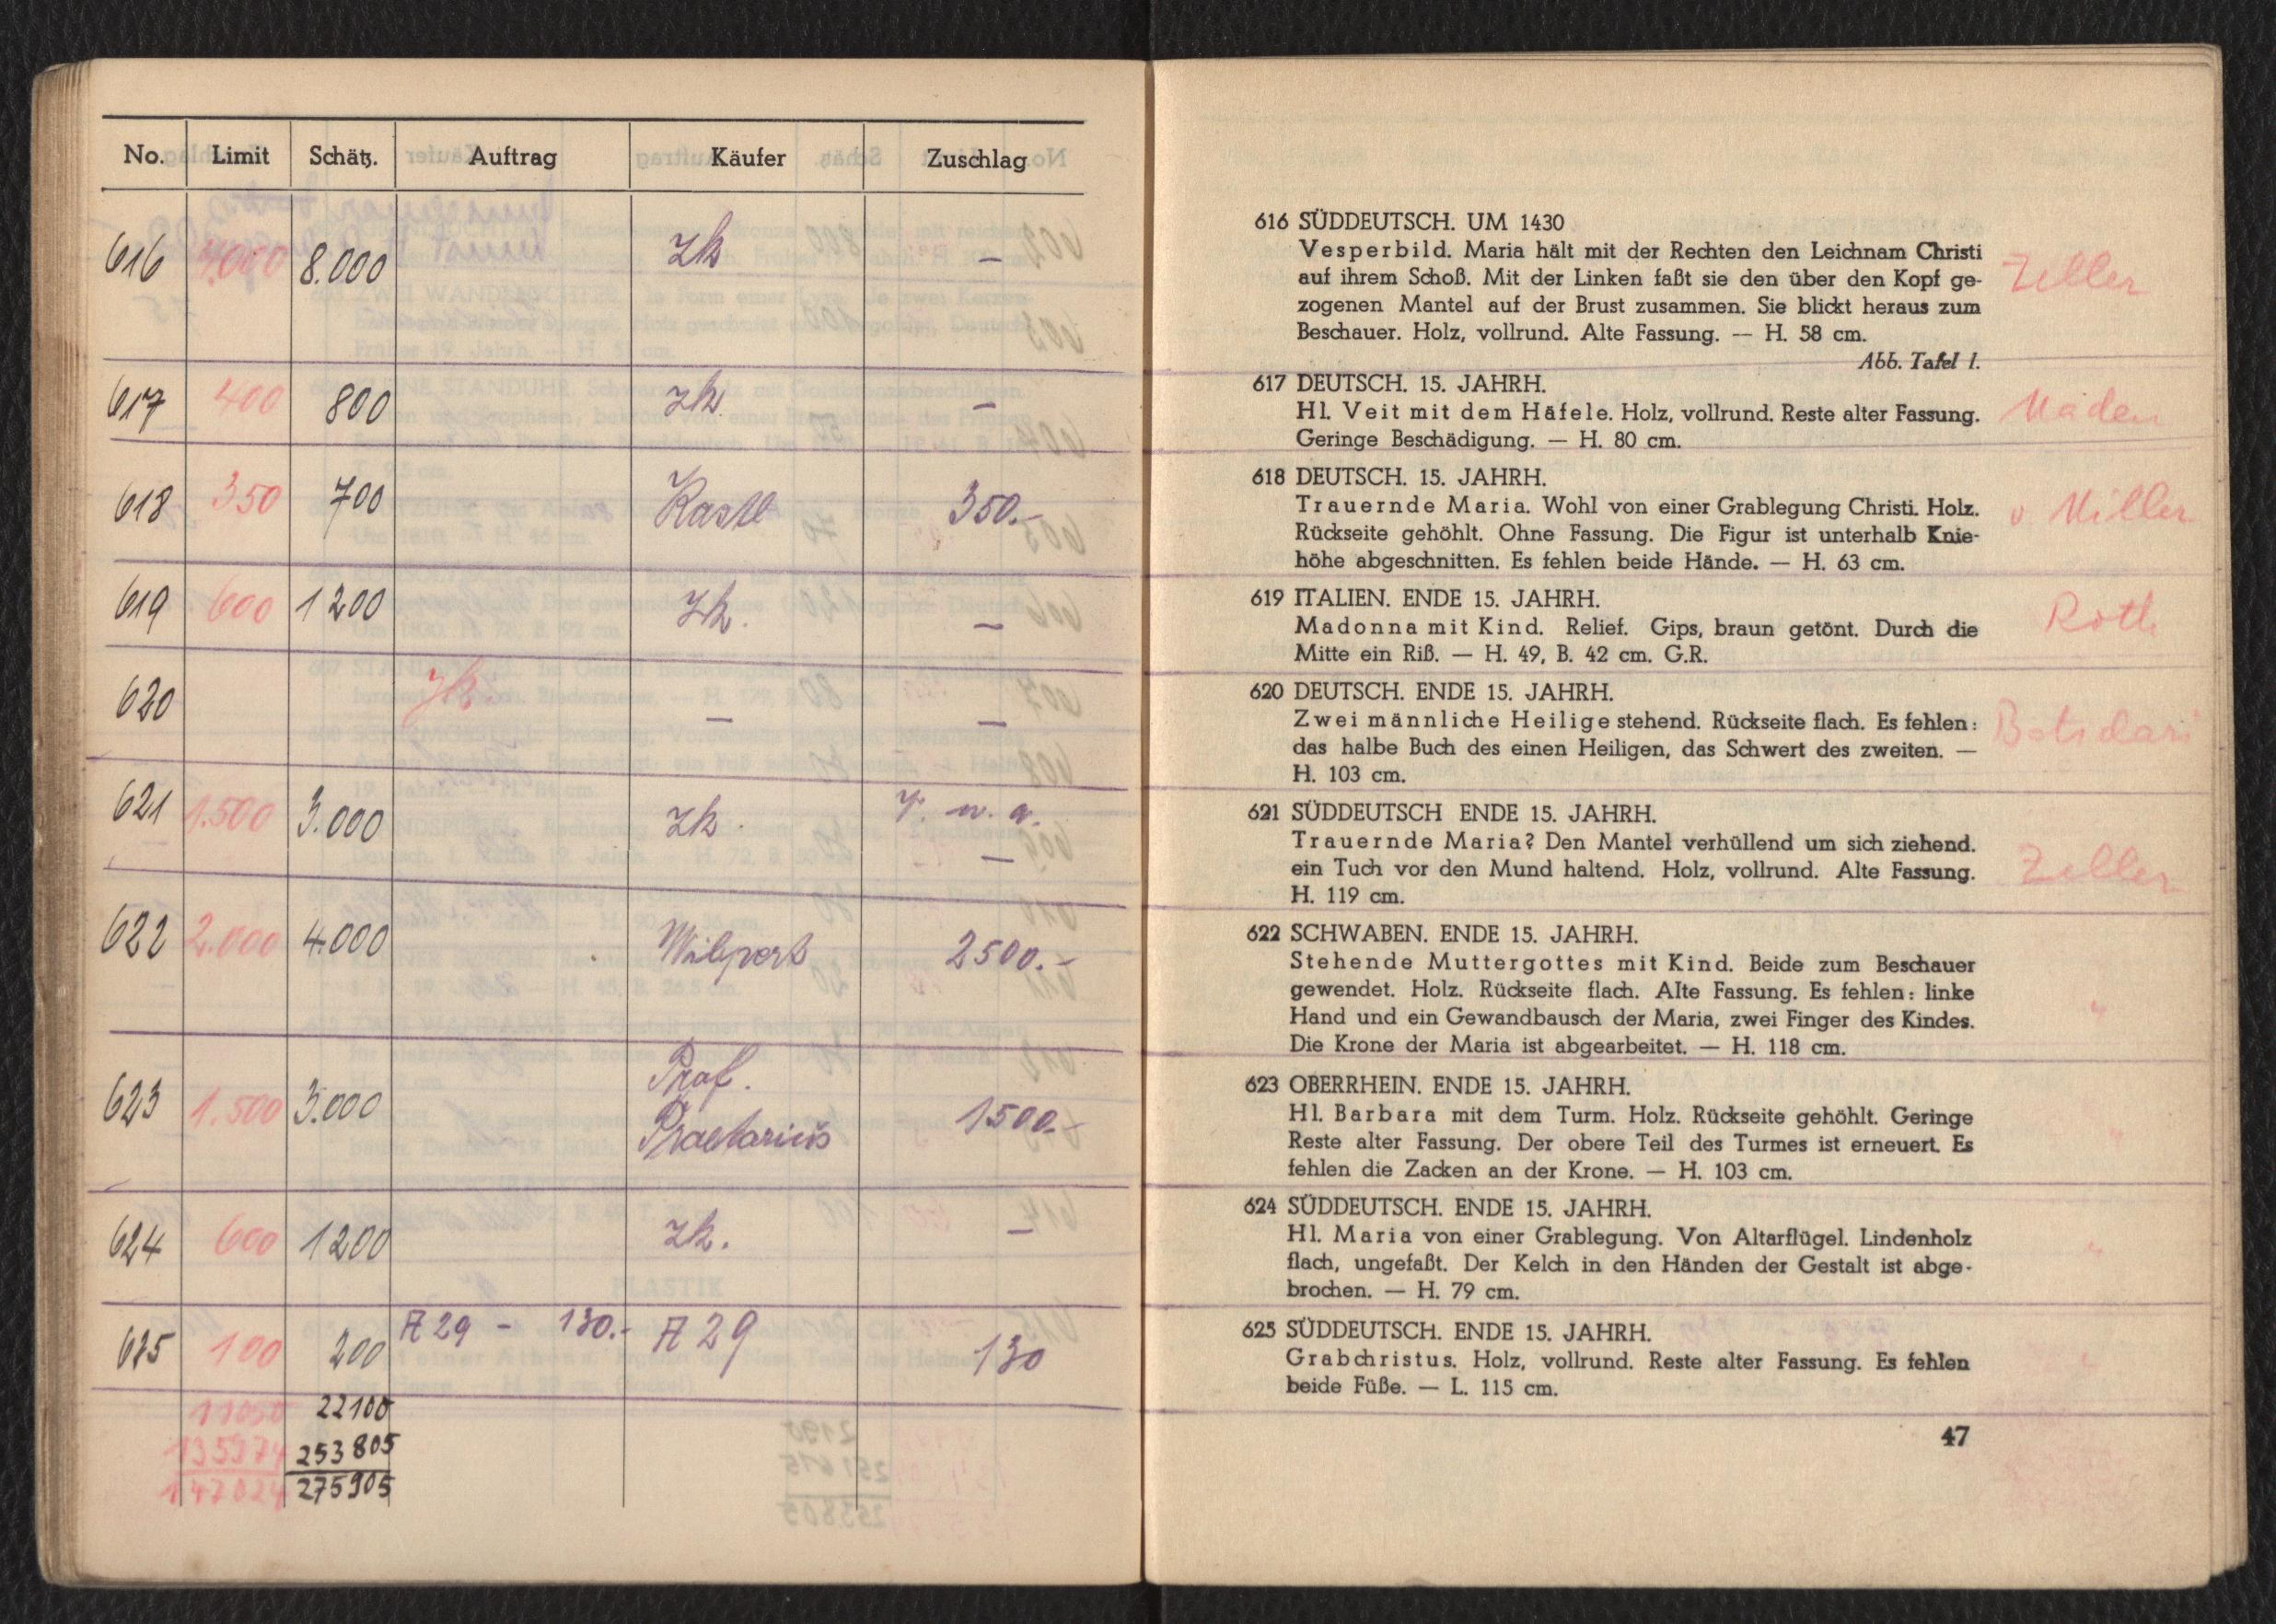 No. Limit Schätz. Auftrag Käufer Zuschlag
616 4.000 8.000 zk –
617 400 800 zk. –
618 350 700 Kastl 350.–
619 600 1200 zk. –
620 zk. – –
621 1.500 3.000 zk. –
622 2.000 4.000 Wilpert 2500.–
623 1.500 3.000 Prof.
Praetorius 1500.–
624 600 1200 zk. –
625 100 200 A 29 – 130.– A 29 130
11050 22100
135974 253805
147024 275905
616 SÜDDEUTSCH. UM 1430
Vesperbild. Maria hält mit der Rechten den Leichnam Christi
auf ihrem Schoß. Mit der Linken faßt sie den über den Kopf ge-
zogenen Mantel auf der Brust zusammen. Sie blickt heraus zum
Beschauer. Holz, vollrund. Alte Fassung. — H. 58 cm.
Abb. Tafel 1.
Zeller
617 DEUTSCH. 15. JAHRH.
Hl. Veit mit dem Häfele. Holz, vollrund. Reste alter Fassung.
Geringe Beschädigung. — H. 80 cm.
618 DEUTSCH. 15. JAHRH.
Trauernde Maria. Wohl von einer Grablegung Christi. Holz.
Rückseite gehöhlt. Ohne Fassung. Die Figur ist unterhalb Knie-
höhe abgeschnitten. Es fehlen beide Hände. — H. 63 cm.
v Miller
619 ITALIEN. ENDE 15. JAHRH.
Madonna mit Kind. Relief. Gips, braun getönt. Durch die
Mitte ein Riß. — H. 49, B. 42 cm. G.R.
Roth
620 DEUTSCH. ENDE 15. JAHRH.
Zwei männliche Heilige stehend. Rückseite flach. Es fehlen:
das halbe Buch des einen Heiligen, das Schwert des zweiten. —
H. 103 cm.
621 SÜDDEUTSCH ENDE 15. JAHRH.
Trauernde Maria? Den Mantel verhüllend um sich ziehend.
ein Tuch vor den Mund haltend. Holz, vollrund. Alte Fassung.
H. 119 cm.
Zeller
622 SCHWABEN. ENDE 15. JAHRH.
Stehende Muttergottes mit Kind. Beide zum Beschauer
gewendet. Holz. Rückseite flach. Alte Fassung. Es fehlen: linke
Hand und ein Gewandbausch der Maria, zwei Finger des Kindes.
Die Krone der Maria ist abgearbeitet. — H. 118 cm.
"
623 OBERRHEIN. ENDE 15. JAHRH.
Hl. Barbara mit dem Turm. Holz. Rückseite gehöhlt. Geringe
Reste alter Fassung. Der obere Teil des Turmes ist erneuert. Es
fehlen die Zacken an der Krone. — H. 103 cm.
"
624 SÜDDEUTSCH. ENDE 15. JAHRH.
Hl. Maria von einer Grablegung. Von Altarflügel. Lindenholz
flach, ungefaßt. Der Kelch in den Händen der Gestalt ist abge-
brochen. — H. 79 cm.
"
625 SÜDDEUTSCH. ENDE 15. JAHRH.
Grabchristus. Holz, vollrund. Reste alter Fassung. Es fehlen
beide Füße. — L. 115 cm.
"
47